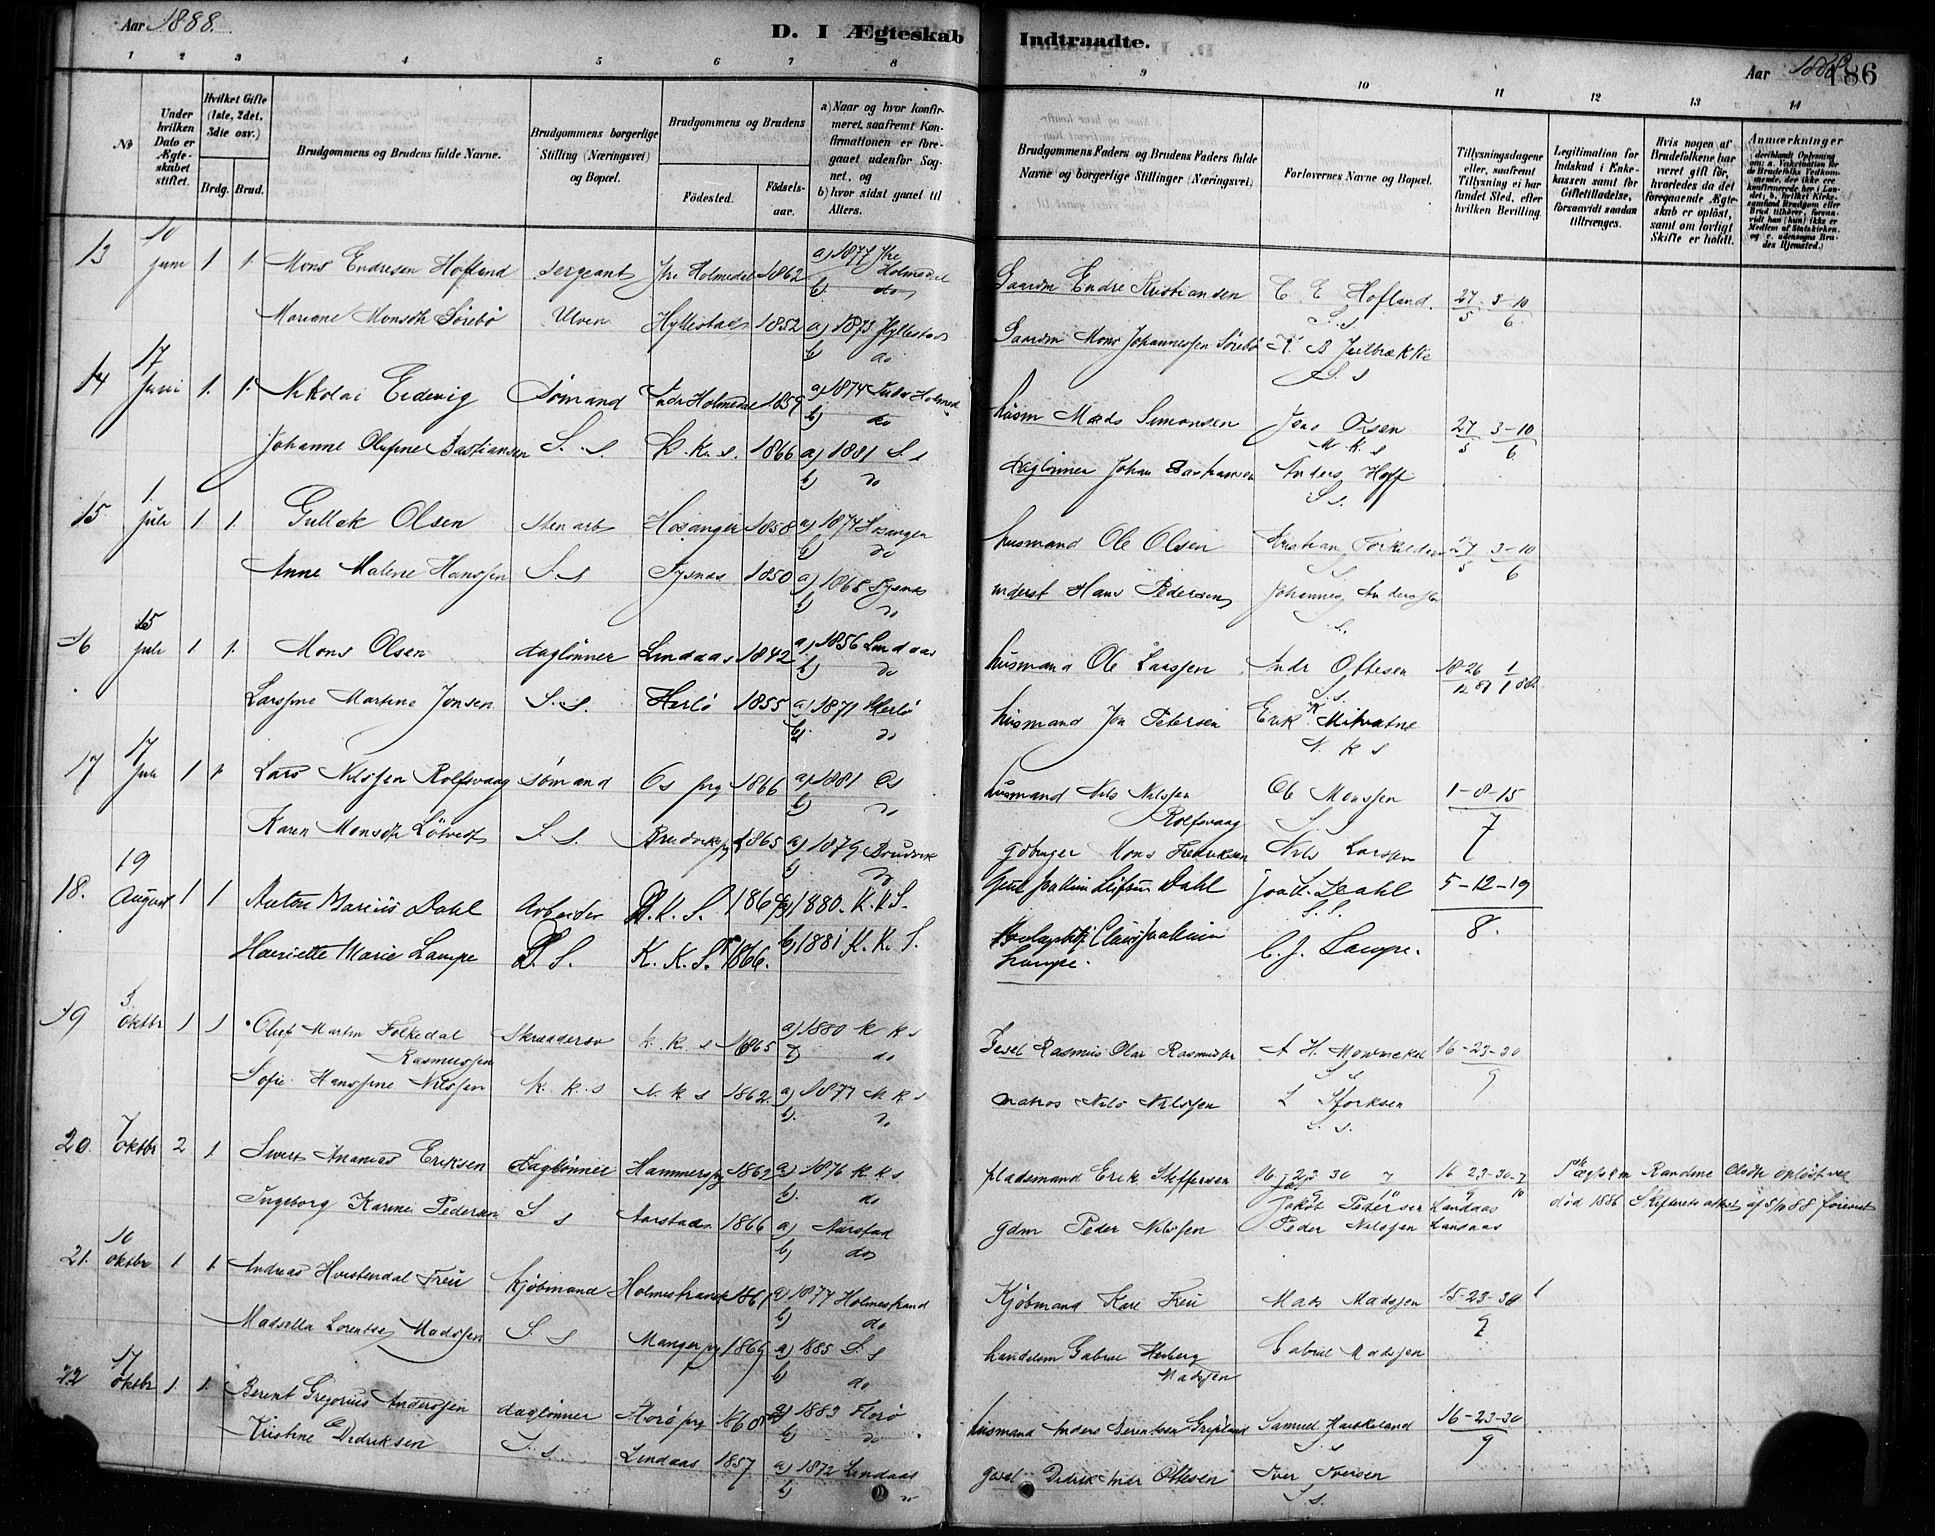 Aar 1888.
D. I Ægteskab Indtraadte.
Aar 1888
186
1 2 3 4 5 6 7 8 9 10 11 12 13 14
No
Under hvilken Dato er Ægteskabet stiftet.
Hvilket Gifte (1ste, 2det, 3die osv.)
Brdg. Brud.
Brudgommens og Brudens fulde Navne.
Brudgommens borgerlige Stilling (Næringsvei) og Bopæl.
Brudgommens og Brudens
Fødested. Fødselsaar.
a) Naar og hvor konfirmeret, saafremt Konfirmationen er foregaaet udenfor Sognet, og
b) hvor sidst gaaet til Alters.
Brudgommens Faders og Brudens Faders fulde Navne og borgerlige Stillinger (Næringsvei)
Forlovernes Navne og Bopæl.
Tillysningsdagene eller, saafremt Tillysning ei har fundet Sted, efter hvilken Bevilling.
Legitimation for Indskud i Enkekassen samt for Giftetilladelse, forsaavidt saadan tiltrænges.
Hvis nogen af Brudefolkene har været gift før, hvorledes da det foregaaende Ægteskab er opløst, samt om lovligt Skifte er holdt.
Anmærkninger
13 10 Juni 1 1. Mons Endresen Hofland sergeant Ytre Holmedal 1862 a) 1877 Ytre Holmedal b) do Gaardm Endre Kristiansen C E Hofland. S. s 27/5 3-10/6
Mariane Monsdtr Sörebö Ulven Hyllestad 1852 a) 1873 Hyllestad b) do Gaardm Mons Johannessen Sörebö S. s
14 17 Juni 1. 1. Nikolai Eidevig Sømand Indr Holmedal 1859 a) 1874 Indr Holmed b) do husm Mads Simonsen Jens Olsen N. K. s 27/5 3-10/6
Johanne Olufine Bastiansen S. s. K. K. s. 1866 a) 1881 S. s b) do daglönner Johan Bastiansen Anders Hoff S. s.
15 1. Juli 1 1. Gullak Olsen Sten arb Hosanger 1858 a) 1874 Hosanger b) do husmand Ole Olsen Kristian Torkildsen 27/5 3-10/6
Anne Malene Hanssen S. s Tysnæs 1850 a) 1868 Tysnæs b) do inderst Hans Pedersen Johannes Anderssen S.
16 15 Juli 1 1. Mons Olsen daglönner Lindaas 1842 a) 1856 Lindaas b) do husmand Ole Larssen Andr Ottesen S. s. 18-26/12 87 1/1 88
Larsine Martine Jonsen S. s. Herlö 1855 a) 1871 Herlö b) do husmand Jon Petersen Erik Mitvatne N. K s
17 17 Juli 1 1. Lars Nilssen Rolfsvaag sømand Os prg 1866 a) 1881 Os b) do husmand Nils Nilssen Rolfsvaag Ole Monssen S 1-8-15/7
Karen Monsdtr Lötveit S. s. Bruvik prg 1865 a) 1879 Bruvik b) do gdbruger Mons Fredriksen Nils Larssen
18. 19 August 1 1 Anton Marius Dahl Arbeider K. K. S. a) 1880. K. K. S. Joakim Dahl S. S. 5-12-19/8.
Henriette Marie Lampe S. S. K. K. S. 1866. b) 1881 K. K. S. Claus Joakim Lampe. C. J. Lampe.
19 3. Oktbr 1 1 Oluf Martin Folkedal Rasmussen Skrædersv K. K. s 1865 a) 1880 K K s b) do Rasmus Olai Rasmussen A H. Mowinckel S s 16-23-30/9
Sofie Hanssine Nilssen K. K. s N. K s 1862. a) 1877 N K s b) do matros Nils Nilssen L Storksen S. s.
20. 7 Oktbr 2 1 Sivert Ananias Eriksen daglönner Hammers prg 1862 a) 1876 K K s b) do pladsmand Erik Steffensen 16-23-30/9 7/10 16-23-30/9 7/10 1ste ægtsk m Randine opløst ved
Ingeborg Karine Pedersen S s Aarstad 1866 a) Aarstad b) do gdm Peder Nilssen Jakob Petersen Landaas Peder Nilssen Landaas död 1886 Skifterets attest af 5/10 88 forevist
21. 10 Oktbr 1 1. Andreas Hvistendal Freii Kjöbmand Holmestrand 1861 a) 1877 Holmestrand b) do Kjöbmand Kare Freii Mads Madssen 15-23-30/9 1
Madsella Lorentse Madssen S. s Manger prg 1869 a) 1885 S. s b) do handelsm Gabriel Herberg Madssen Gabriel Madssen
22 17 Oktbr 1. 1. Berent Gregorius Anderssen daglönner Florö prg a) 1883 Florö b) do husmand Anders Berentsen Samuel Haukeland S. s 16-23-30/9
Kristine Didriksen S. s. Lindaas 1857 a) 1872 Lindaas b) do Didrik Andr Ottesen Iver Iversen S. s.